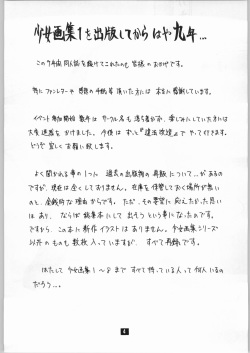 少女画集1を出版してからはや九年…
この9年間同人誌を続けてこれたのも皆様のおかげです。
特にファンレターや感想の手紙等頂いた方には本当に感謝しています。
イベント参加開始数年はサークル名も決らず、楽しみにしていた方には
大変迷惑をかけました。今後はずっと『違法改造』でやって行きます。
どうぞ宜しくお願い致します。
よく聞かれる事の1つに過去の出版物の再販について…があるの
ですが、現在は全くしておりません。在庫を保管しておく場所が無い
のと、金銭的な理由からです。ただ、その要望に応えたかった思い
はあり、ならば総集本にして出そうという事になったのです。
ですから、この本に新作イラストはありません。少女画集シリーズ
以外のものも数枚入っていますが、すべて再録です。
はたして少女画集1～8まですべて持っている人って何人いるの
だろう…。
4